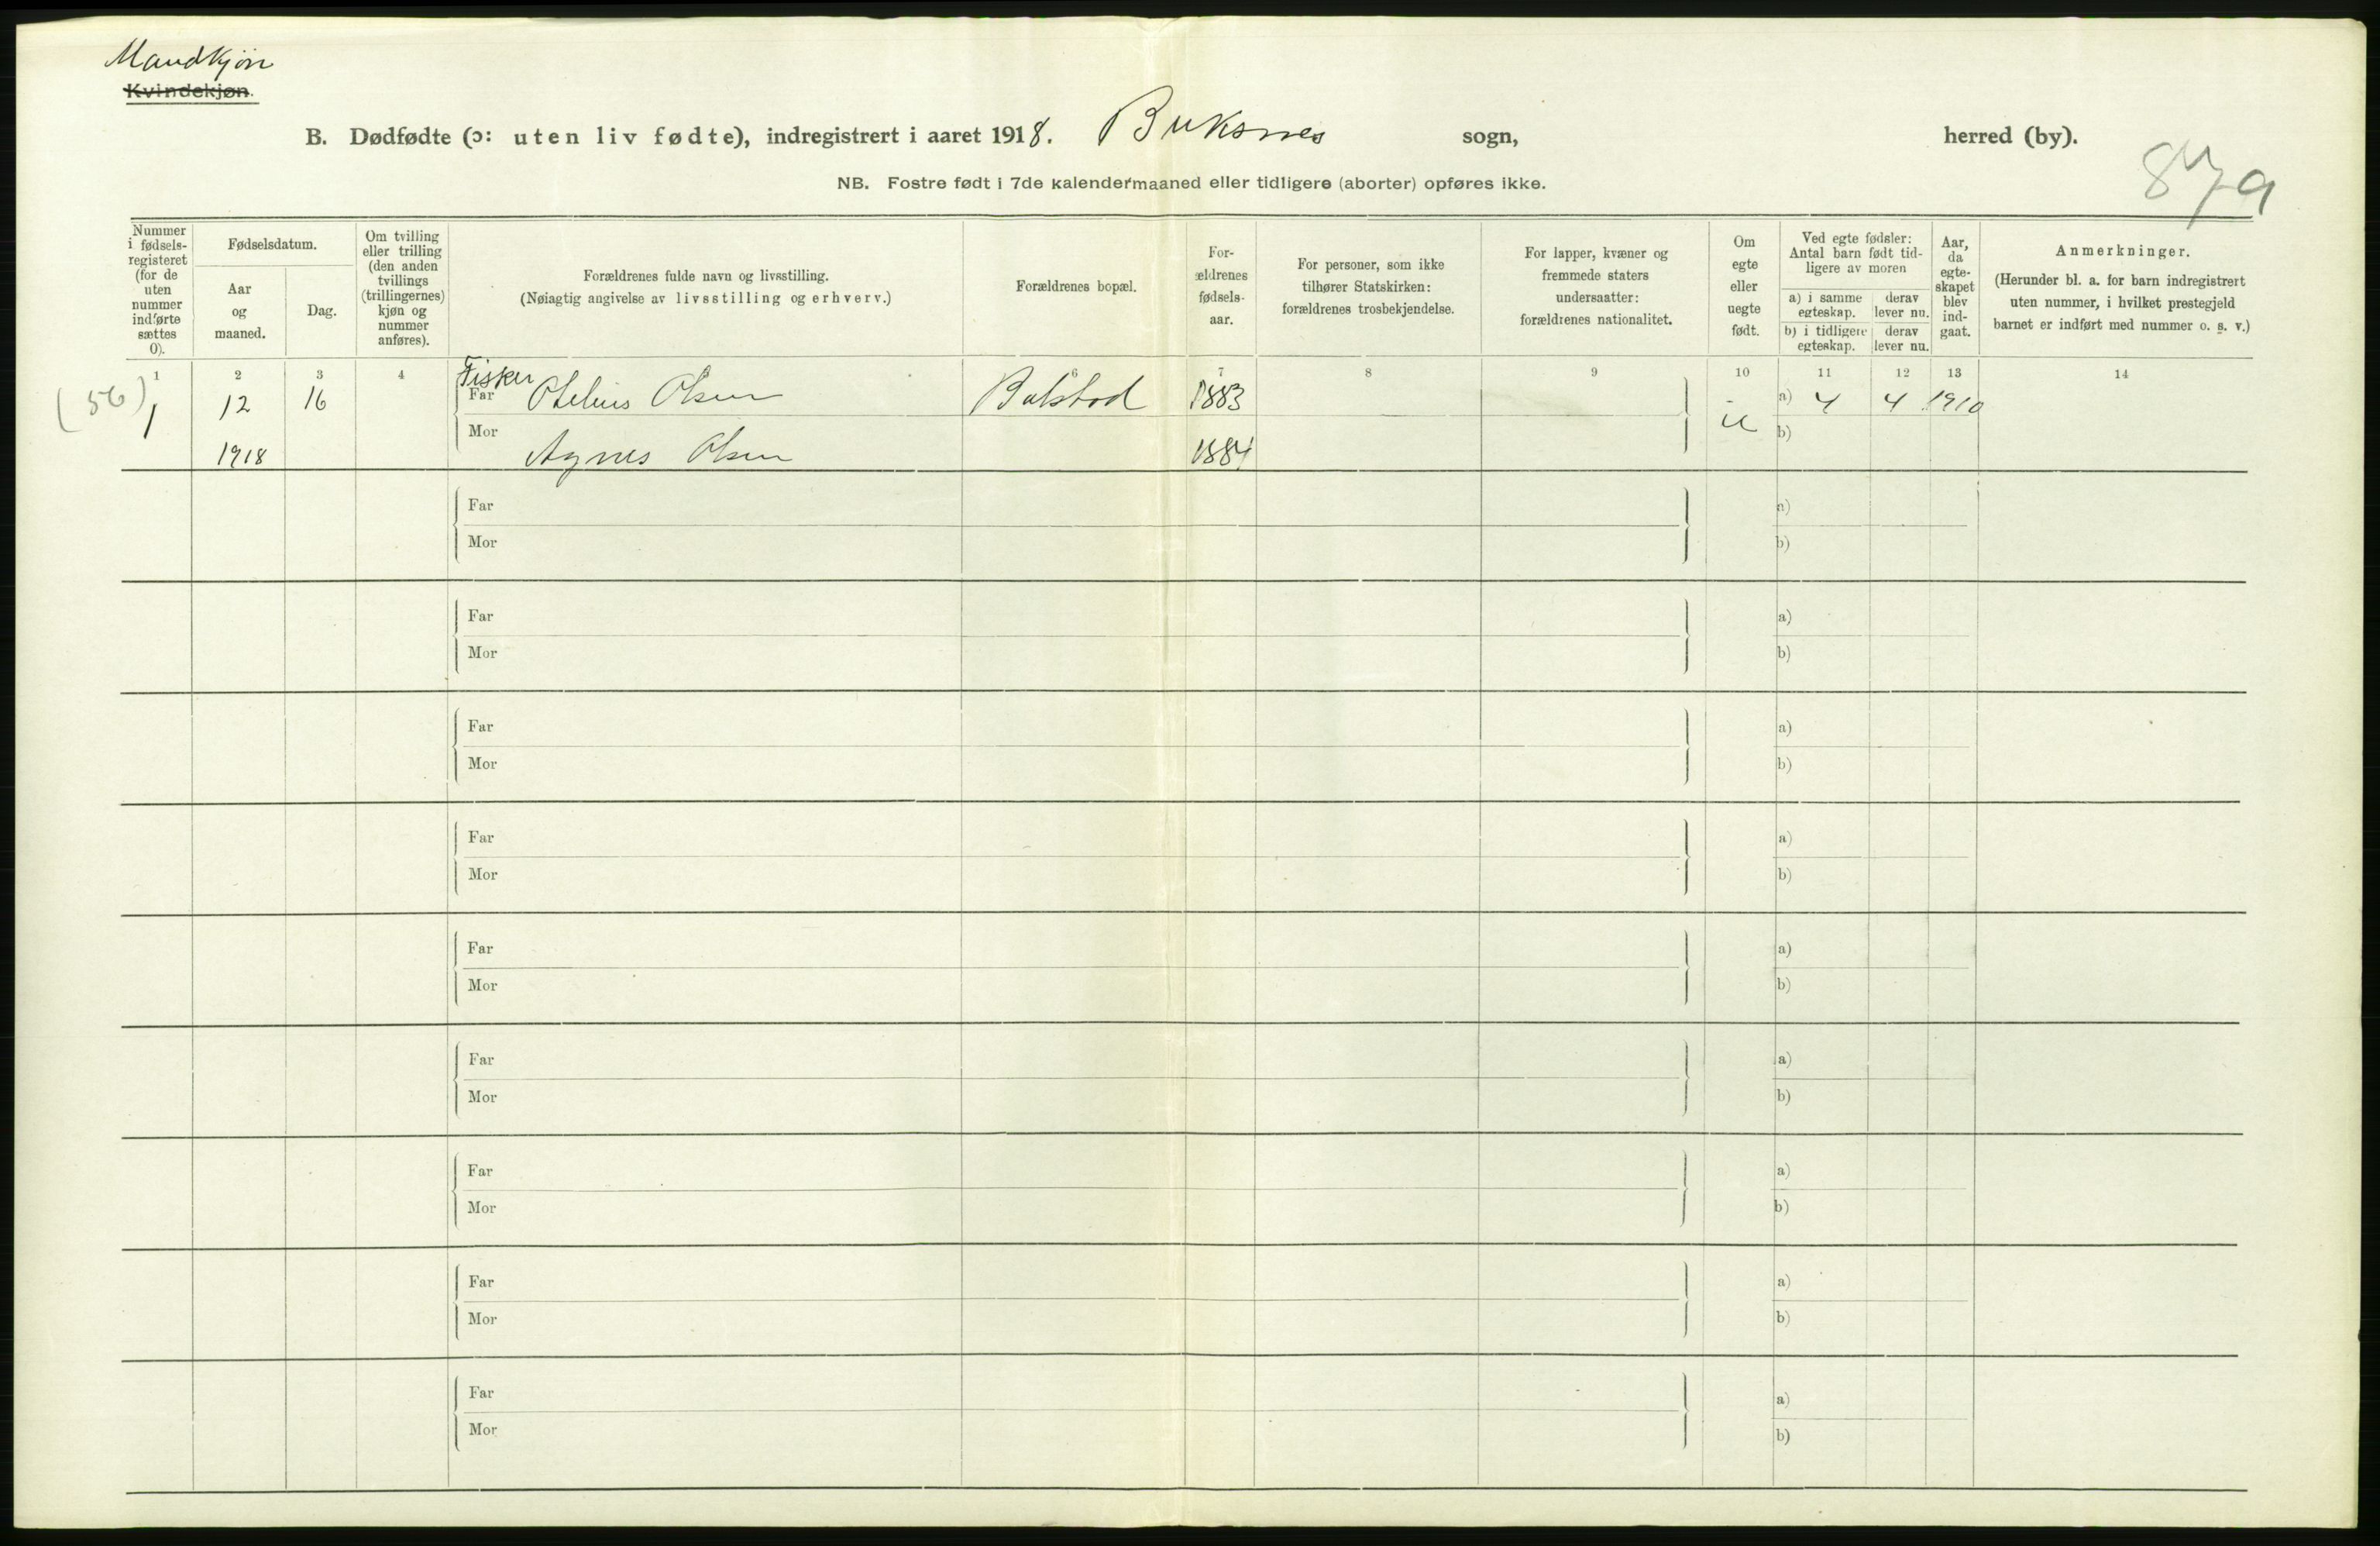 Mandkjøn
Kvindekjøn.
B. Dødfødte (ɔ: uten liv fødte), indregistrert i aaret 1918. Buksnes sogn, herred (by).
87a
NB. Fostre født i 7de kalendermaaned eller tidligere (aborter) opføres ikke.
Nummer i fødsels-registeret (for de uten nummer indførte sættes 0).
Fødselsdatum.
Aar og maaned.
Dag.
Om tvilling eller trilling (den anden tvillings (trillingernes) kjøn og nummer anføres).
Forældrenes fulde navn og livsstilling.
(Nøiagtig angivelse av livsstilling og erhverv.)
Forældrenes bopæl.
For-ældrenes fødsels-aar.
For personer, som ikke tilhører Statskirken: forældrenes trosbekjendelse.
For lapper, kvæner og fremmede staters undersaatter: forældrenes nationalitet.
Om egte eller uegte født.
Ved egte fødsler: Antal barn født tid-ligere av moren
a) i samme egteskap. derav lever nu.
b) i tidligere egteskap. derav lever nu.
Aar, da egte-skapet blev ind-gaat.
Anmerkninger.
(Herunder bl. a. for barn indregistrert uten nummer, i hvilket prestegjeld barnet er indført med nummer o. s. v.)
1 2 3 4 6 7 8 9 10 11 12 13 14
Fisker
(56) 1 12 16 Far Otelius Olsen Balstad 1883 a) 4 4 1910
1918 Mor Agnes Olsen 1884 b)
Far a)
Mor b)
Far a)
Mor b)
Far a)
Mor b)
Far a)
Mor b)
Far a)
Mor b)
Far a)
Mor b)
Far a)
Mor b)
Far a)
Mor b)
Far a)
Mor b)